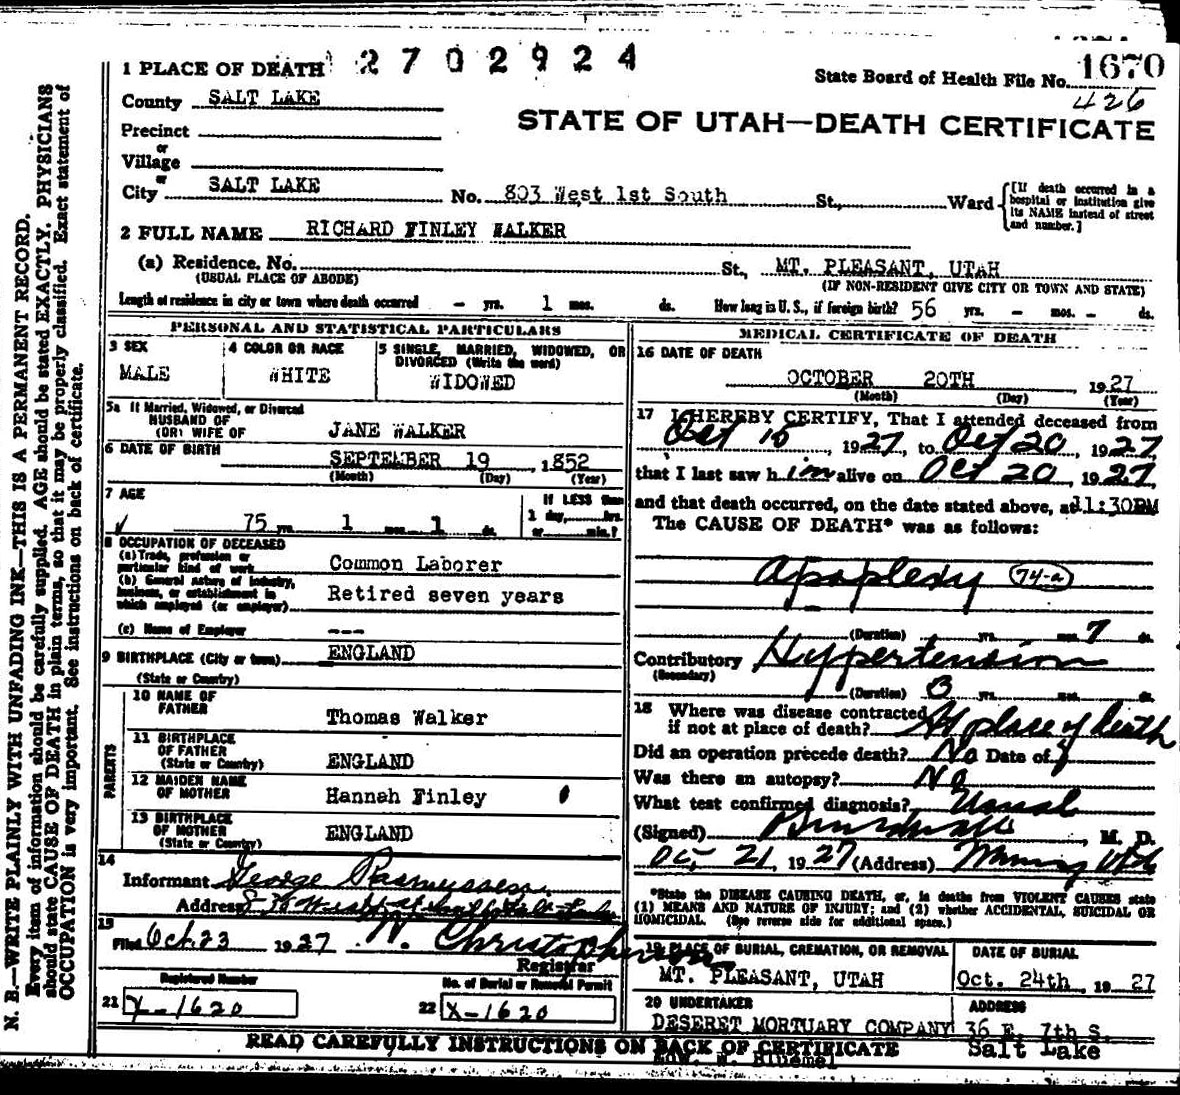 N. B.—WRITE PLAINLY WITH UNFADING INK—THIS IS A PERMANENT RECORD.
Every item of information should be carefully supplied. AGE should be stated EXACTLY. PHYSICIANS
should state CAUSE OF DEATH in plain terms, so that it may be properly classified. Exact statement of
OCCUPATION is very important. See instructions on back of certificate.
2702924
1 PLACE OF DEATH
State Board of Health File No. 1670
426
County SALT LAKE
STATE OF UTAH—DEATH CERTIFICATE
Precinct
or
Village
or
City SALT LAKE No. 803 West 1st South St., Ward
[If death occurred in a
hospital or institution give
its NAME instead of street
and number.]
2 FULL NAME RICHARD FINLEY WALKER
(a) Residence. No. St., MT. PLEASANT, UTAH
(USUAL PLACE OF ABODE) (IF NON-RESIDENT GIVE CITY OR TOWN AND STATE)
Length of residence in city or town where death occurred - yrs. 1 mos. ds. How long in U. S., if foreign birth? 56 yrs. - mos. - ds.
PERSONAL AND STATISTICAL PARTICULARS
3 SEX
MALE
4 COLOR OR RACE
WHITE
5 SINGLE, MARRIED, WIDOWED, OR
DIVORCED (Write the word)
WIDOWED
5a If Married, Widowed, or Divorced
HUSBAND OF
(OR) WIFE OF JANE WALKER
6 DATE OF BIRTH
SEPTEMBER 19, 1852
(Month) (Day) (Year)
7 AGE
75 yrs. 1 mos. 1 ds.
If LESS than
1 day, hrs.
or min.?
8 OCCUPATION OF DECEASED
(a) Trade, profession or
particular kind of work Common Laborer
(b) General nature of industry,
business, or establishment in
which employed (or employer) Retired seven years
(c) Name of Employer ---
9 BIRTHPLACE (City or town) ENGLAND
(State or Country)
PARENTS
10 NAME OF
FATHER Thomas Walker
11 BIRTHPLACE
OF FATHER
(State or Country) ENGLAND
12 MAIDEN NAME
OF MOTHER Hannah Finley
13 BIRTHPLACE
OF MOTHER
(State or Country) ENGLAND
14
Informant George Rasmussen
Address
15
Filed Oct. 23 1927 N. Christopherson
Registrar
Registered Number
21 X-1620
No. of Burial or Removal Permit
22 X-1620
MEDICAL CERTIFICATE OF DEATH
16 DATE OF DEATH
OCTOBER 20TH 1927
(Month) (Day) (Year)
17 I HEREBY CERTIFY, That I attended deceased from
Oct 16, 1927, to Oct 20, 1927,
that I last saw him alive on Oct 20, 1927,
and that death occurred, on the date stated above, at 11:30PM
The CAUSE OF DEATH* was as follows:
Apoplexy 74-a
(Duration) yrs. mos. 7 ds.
Contributory Hypertension
(Secondary)
(Duration) 3 yrs. mos. ds.
18 Where was disease contracted
if not at place of death? At place of death
Did an operation precede death? No Date of
Was there an autopsy? No
What test confirmed diagnosis? Usual
(Signed) , M. D.
Oct 21, 1927 (Address)
*State the DISEASE CAUSING DEATH, or, in deaths from VIOLENT CAUSES state
(1) MEANS AND NATURE OF INJURY; and (2) whether ACCIDENTAL, SUICIDAL OR
HOMICIDAL. (See reverse side for additional space.)
19 PLACE OF BURIAL, CREMATION, OR REMOVAL
MT. PLEASANT, UTAH
DATE OF BURIAL
Oct. 24th, 1927
20 UNDERTAKER
DESERET MORTUARY COMPANY
ADDRESS
36 E. 7th S.
Salt Lake
READ CAREFULLY INSTRUCTIONS ON BACK OF CERTIFICATE